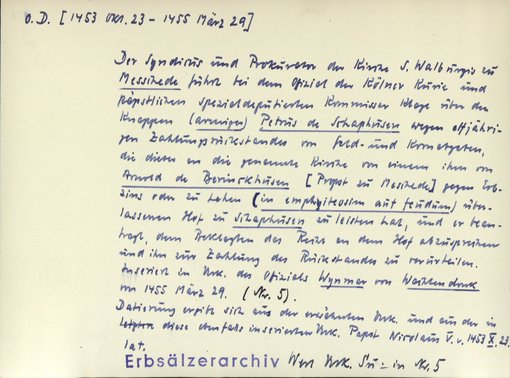 o. D. [1453 Okt. 23 - 1455 März 29]
Der Syndicus und Prokurator der Kirche S. Walburgis zu
Meschede führt bei dem Offizial der Kölner Kurie und
päpstlichen spezialdeputierten Kommissar Klage über den
Knappen (armiger) Petrus de Schaphusen wegen elfjähri-
gen Zahlungsrückstandes von Geld- und Kornabgaben,
die dieser an die genannte Kirche von einem ihm von
Arnold de Berinckhusen [Propst zu Meschede] gegen Erb-
zins oder zu Lehen (in emphiteosim aut feudum) über-
lassenen Hof zu Schaphusen zu leisten hat, und er bean-
tragt, dem Beklagten das Recht an dem Hof abzusprechen
und ihn zur Zahlung des Rückstandes zu verurteilen.
Inseriert in Urk. des Offizials Wynmar von Wachtendonk
von 1455 März 29. (Nr. 5).
Datierung ergibt sich aus der erwähnten Urk. und aus der in
letzten diese ebenfalls inserierten Urk. Papst Nicolaus V. v. 1453 X. 23.
lat.
Erbsälzerarchiv Werl Urk. in Nr. 5